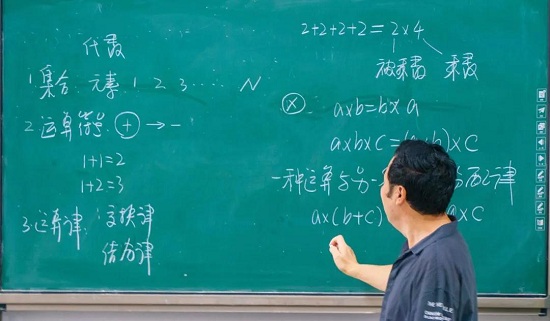 代数
1.集合:元素 1 2 3 …… N
2.运算 + → -
1+1=2
1+2=3
3.运算律: 交换律
结合律
2+2+2+2=2×4
被乘数 乘数
× a×b=b×a
a×b×c=(a×b)×c
一种运算与另一 律
a×(b+c) a×c